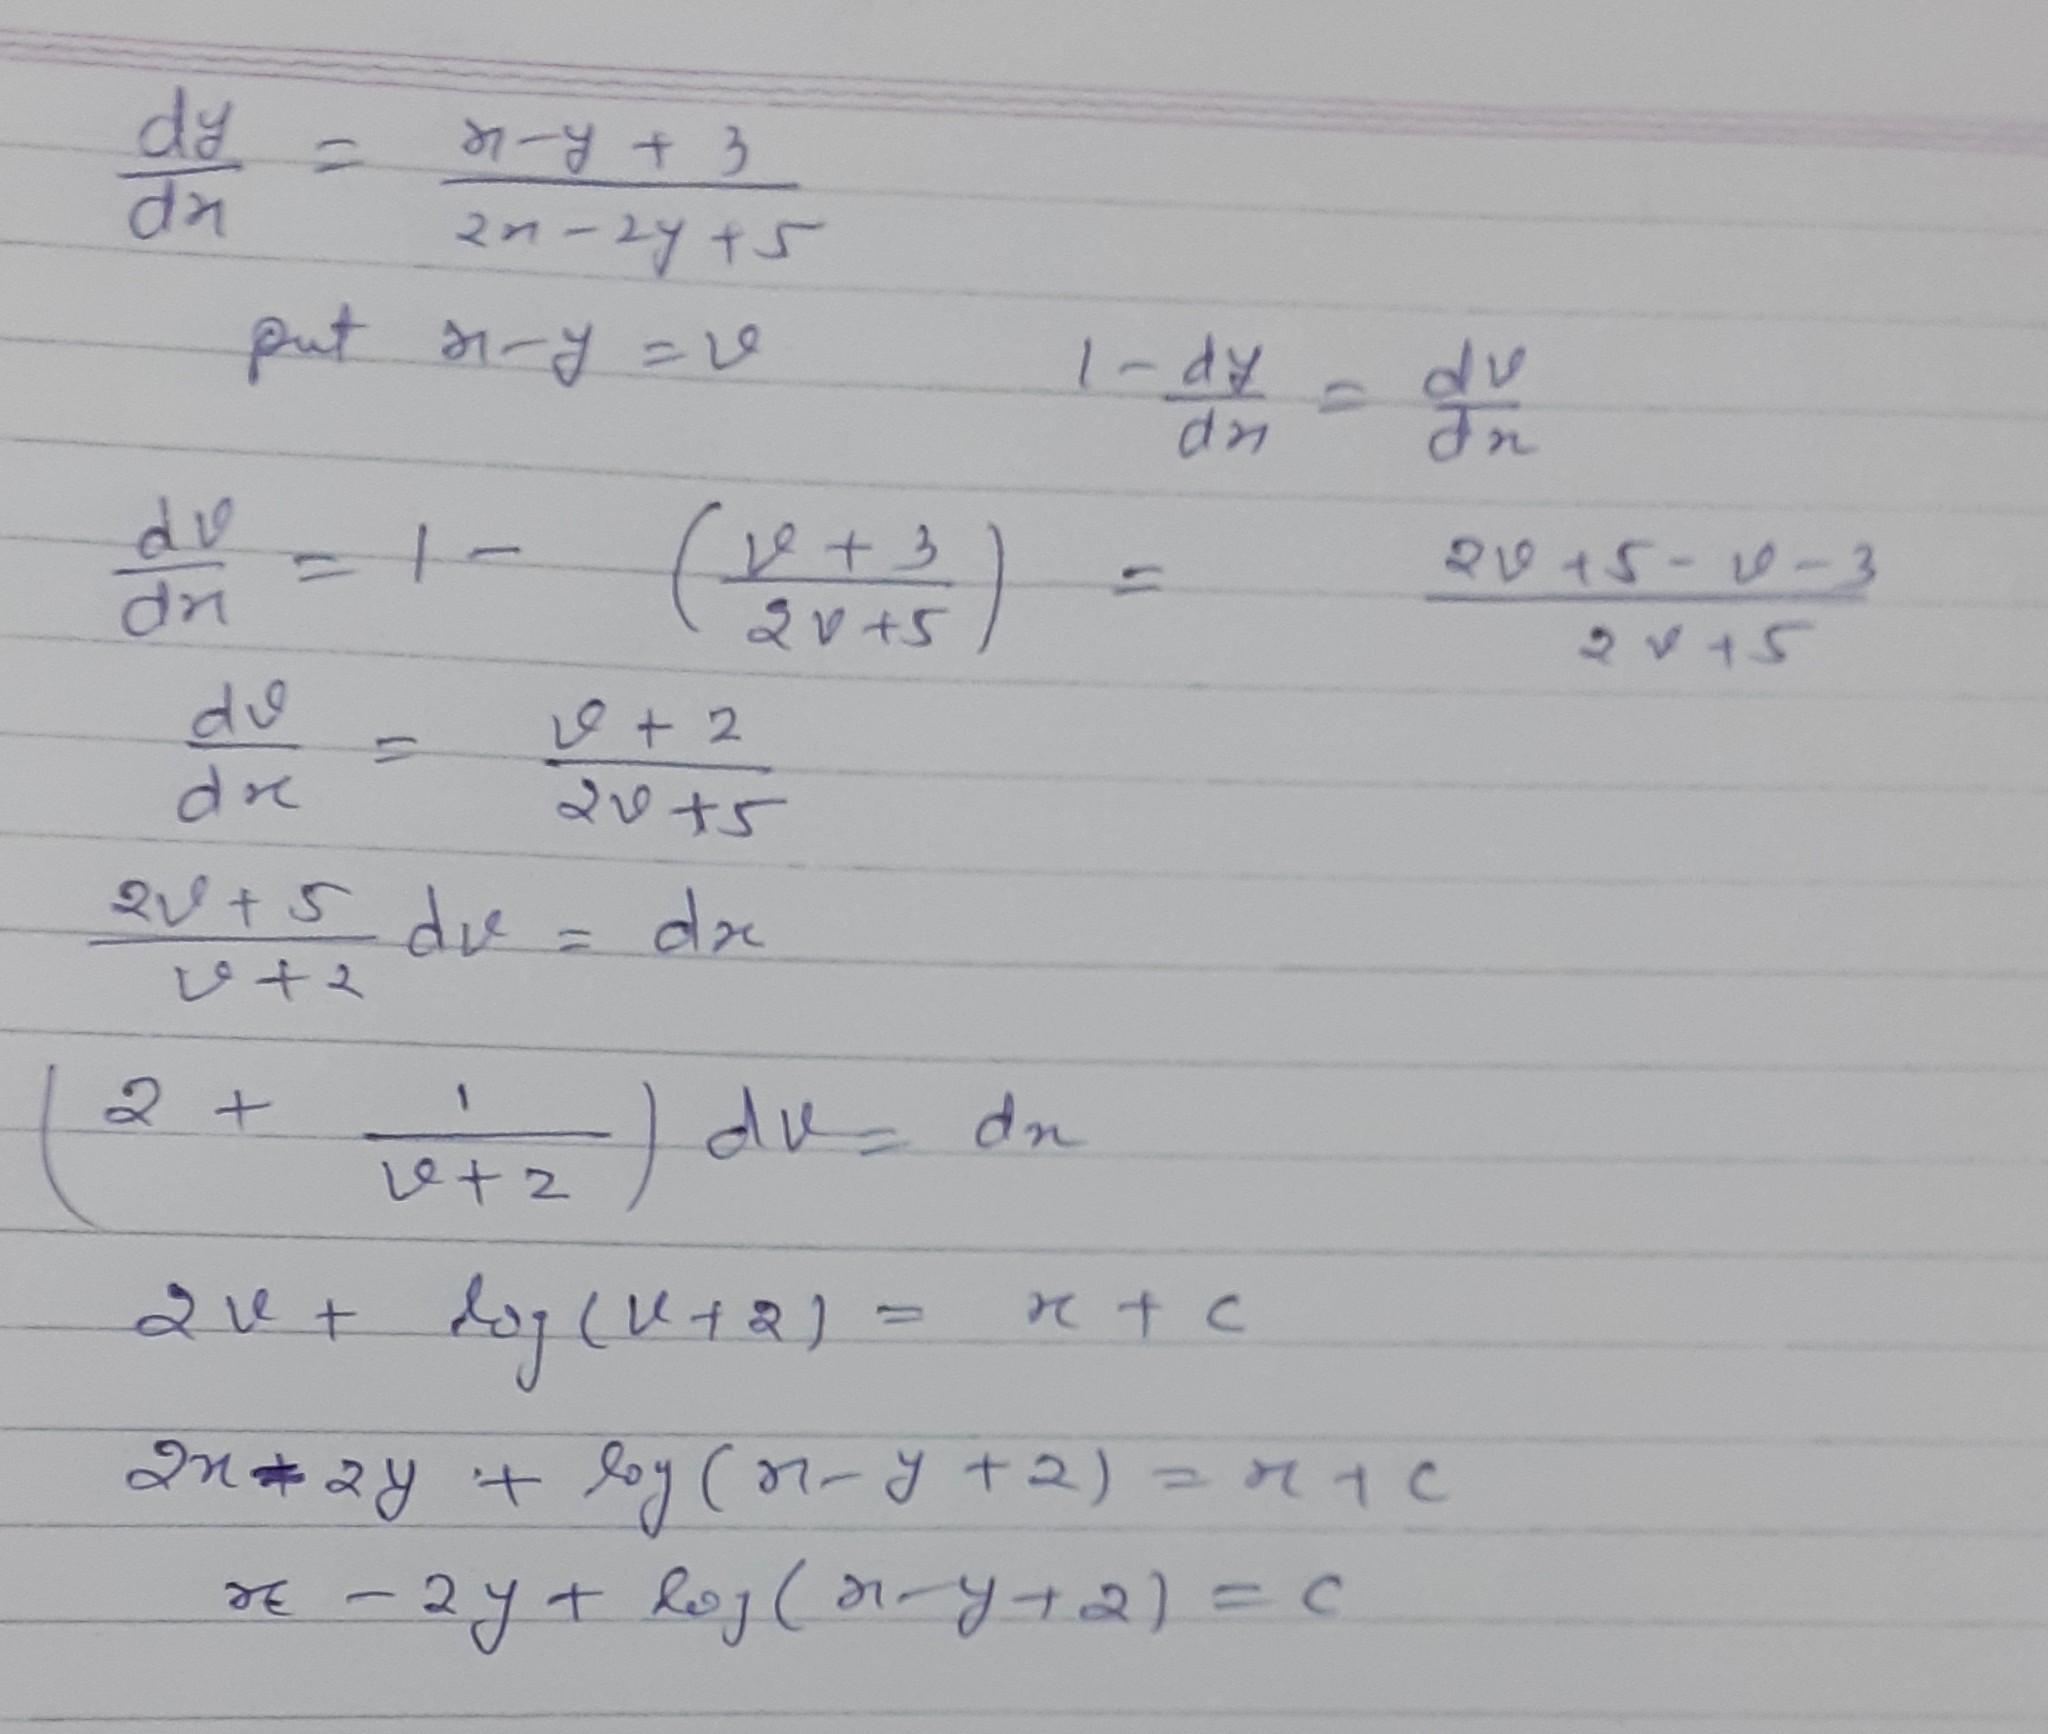 dy/dx = (x-y+3)/(2x-2y+5)
put x-y = v    1 - dy/dx = dv/dx
dv/dx = 1 - ((v+3)/(2v+5)) = (2v+5-v-3)/(2v+5)
dv/dx = (v+2)/(2v+5)
(2v+5)/(v+2) dv = dx
(2 + 1/(v+2)) dv = dx
2v + log(v+2) = x + c
2x - 2y + log(x-y+2) = x + c
x - 2y + log(x-y+2) = c